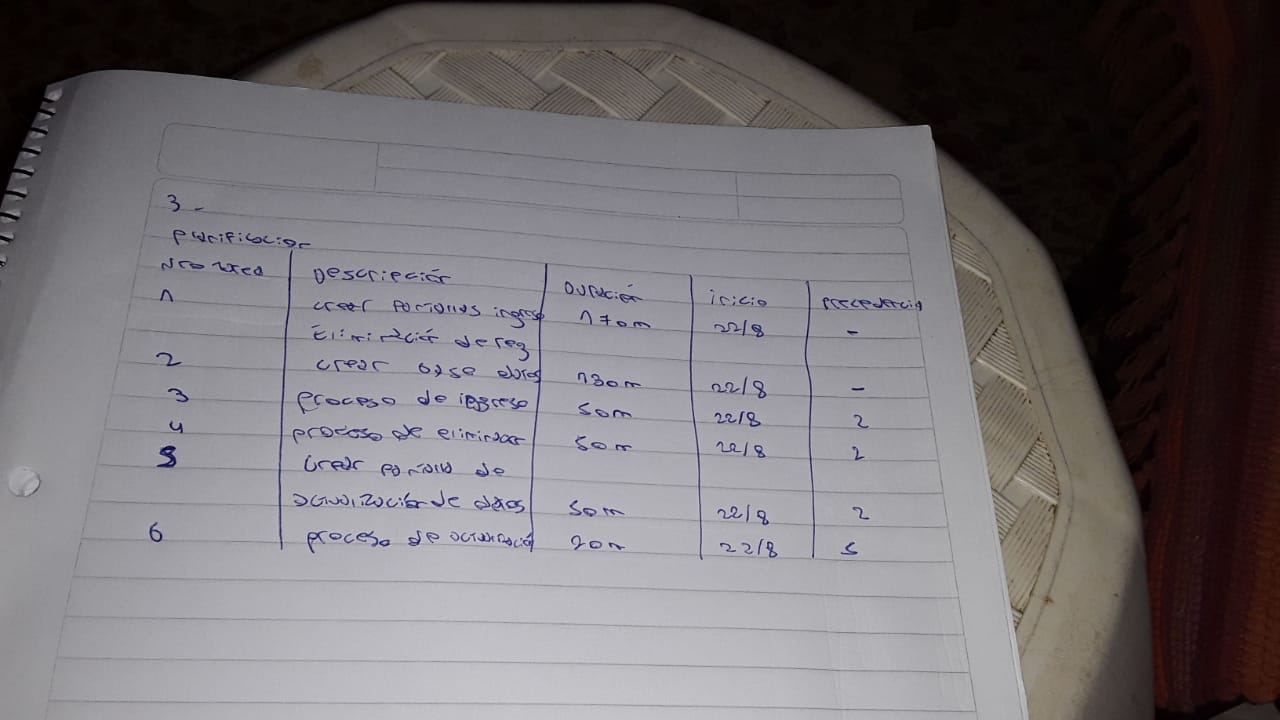 3-
planificacion
Nro tarea Descripción Duración inicio precedencia
1 crear formularios ingreso 170m 22/8 -
Eliminación de reg
2 crear base datos 130m 22/8 -
3 proceso de ingreso 50m 22/8 2
4 proceso de eliminar 50m 22/8 2
5 crear de
actualización de datos 50m 22/8 2
6 proceso de actualizació 22/8 5